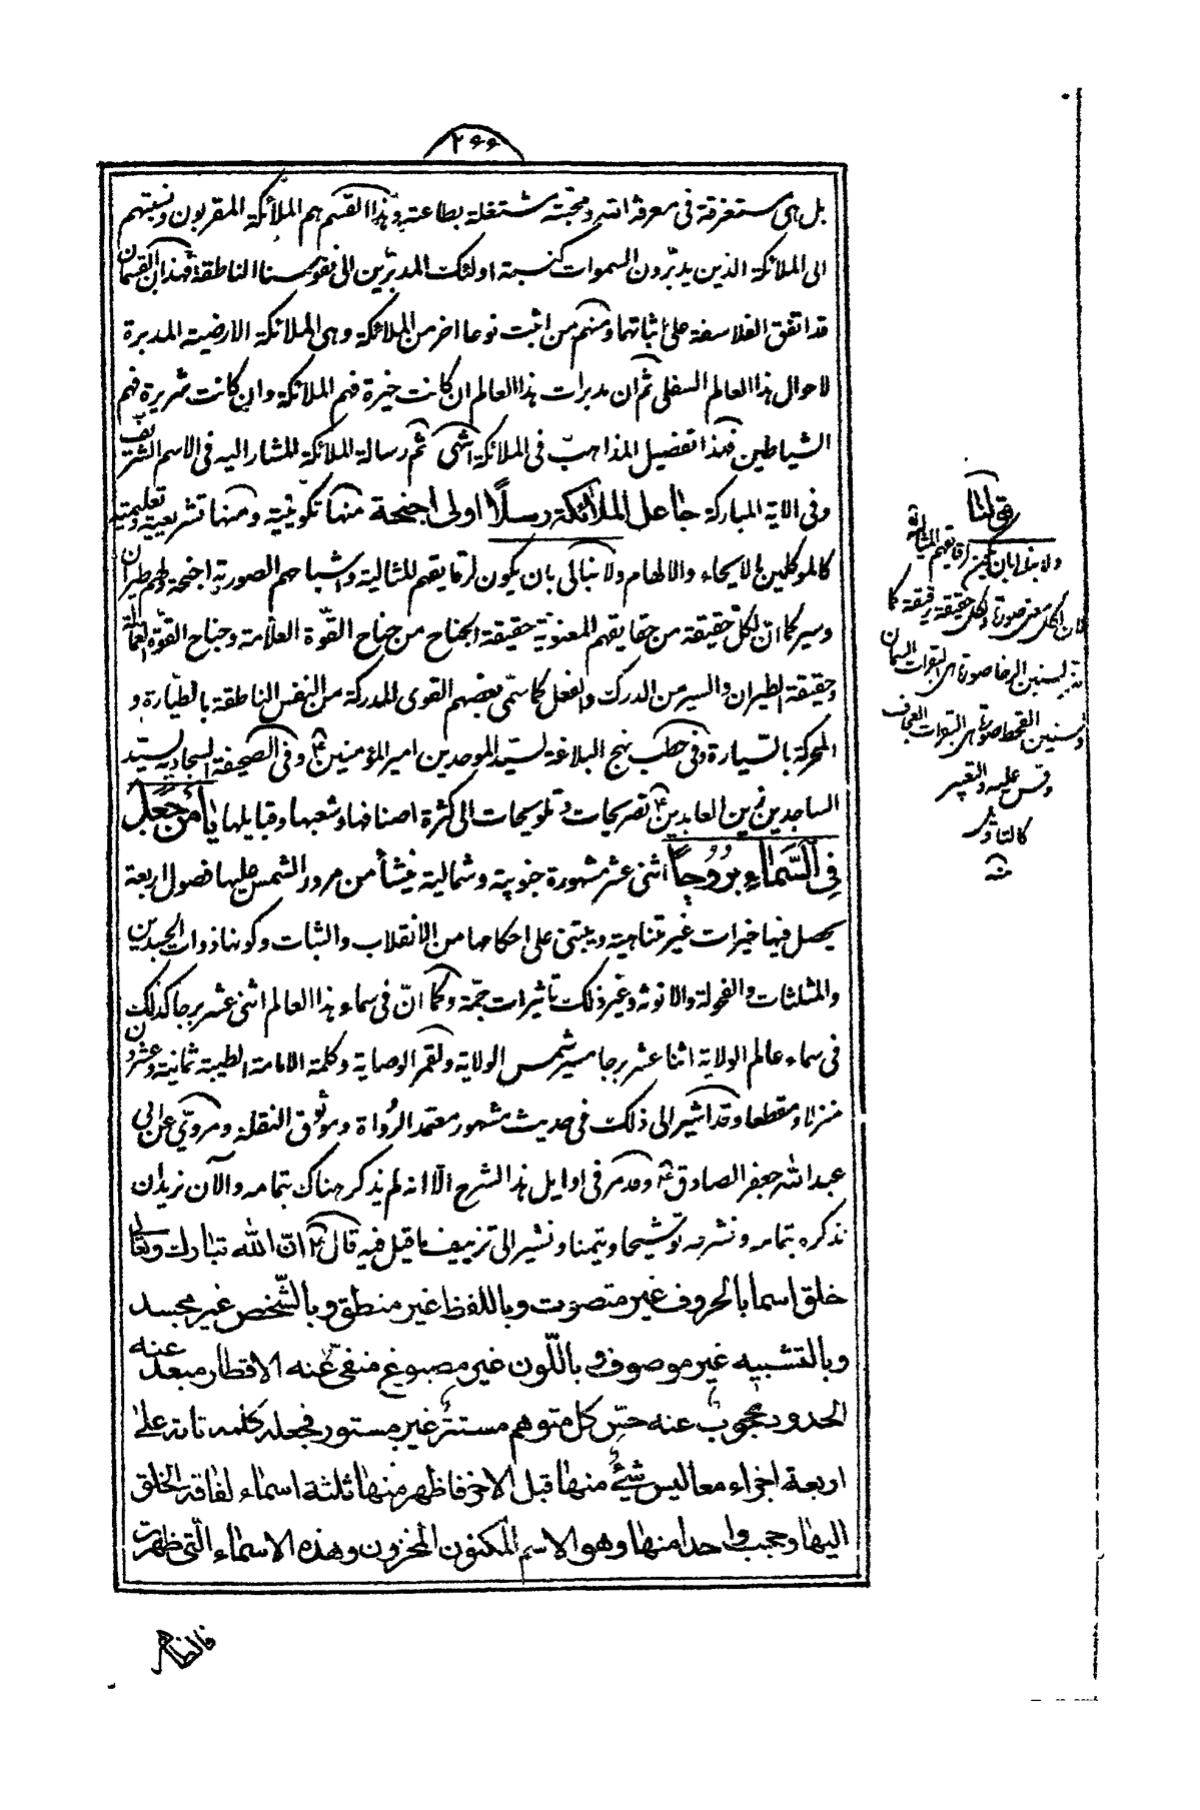 ٢٦٦
بل هى مستغرقة فى معرفة الله ومحبته مشتغلة بطاعته وهذا القسم هم الملائكة المقربون ونسبتهم
الى الملائكة الذين يدبّرون السموات كنسبة اولئك المدبّرين الى نفوسنا الناطقة فهذان القسمان
قد اتفق الفلاسفة على اثباتهما ومنهم من اثبت نوعا اخر من الملائكة وهى الملائكة الارضية المدبرة
لاحوال هذا العالم السفلى ثم ان مدبرات هذا العالم ان كانت خيرة فهم الملائكة وان كانت شريرة فهم
الشياطين فهذا تفصيل المذاهب فى الملائكة انتهى ثم رسالة الملائكة للمشار اليه فى الاسم الشريف
وفى الاية المباركة جاعل الملائكة رسلًا اولى اجنحة منها تكوينية ومنها تشريعية وتعليمية
كالموكلين بالايحاء والالهام ولا نبالى بان يكون لرقايقهم المثالية واشباحهم الصورية اجنحة ولهم طيران
وسير كما انّ لكل حقيقة من حقايقهم المعنوية حقيقة الجناح من جناح القوّة العلّامة وجناح القوّة العمّالة
وحقيقة الطيران والسير من الدرك والفعل كما سمّى بعضهم القوى المدركة من النفس الناطقة بالطيّارة و
المحركة بالسيّارة وفى خطب نهج البلاغة لسيّد الموحدين امير المؤمنين ع وفى الصحيفة السجادية لسيّد
الساجدين زين العابدين ع تصريحات وتلويحات الى كثرة اصنافها وشعبها وقبايلها يا من جعل
فى السّماء بروجًا اثنى عشر مشهورة جنوبية وشمالية ينشأ من مرور الشمس عليها فصول اربعة
يحصل فيها خيرات غير متناهية ويبتنى على احكامها من الانقلاب والثبات وكونها ذوات الجسدين
والمثلثات والفحولة والانوثة وغير ذلك تاثيرات جمّة وكما انّ فى سماء هذا العالم اثنى عشر برجا كذلك
فى سماء عالم الولاية اثنا عشر برجا مسير شمس الولاية ولقمر الوصاية وكلمة الامامة الطيبة ثمانية وعشرون
منزلا ومقطعا وقد اشير الى ذلك فى حديث مشهور معتمد الرُواة وموثوق النقلة ومروىّ عن ابى
عبد الله جعفر الصادق ع وقد مر فى اوايل هذا الشرح الّا انه لم يذكر هناك بتمامه والآن نريد ان
نذكره بتمامه ونشرحه توشيحا وتيمنا ونشير الى تزييف ما قيل فيه قال ع انّ الله تبارك وتعالى
خلق اسما بالحروف غير متصوت وباللفظ غير منطق وبالشّخص غير مجسد
وبالتشبيه غير موصوف وباللّون غير مصبوغ منفىّ عنه الاقطار مبعد عنه
الحدود محجوبٌ عنه حسّ كل متوهم مستترٌ غير مستور فجعله كلمه تامه على
اربعة اجزاء معا ليس شئٌ منها قبل الاخر فاظهر منها ثلثة اسماء لفاقة الخلق
اليها وحجب واحدا منها وهو الاسم المكنون المخزون وهذه الاسماء الّتى ظهرت
فالظاهر
قولنا
ولا نبالى بان يكون لرقايقهم المثالية
فان لكل معنى صورة ولكل حقيقة رقيقة كما
لسنين الرخا صورة هى البقرات السمان
ولسنين القحط صورة هى البقرات العجاف
وقس عليه والتعبير
كالتاويل
منه